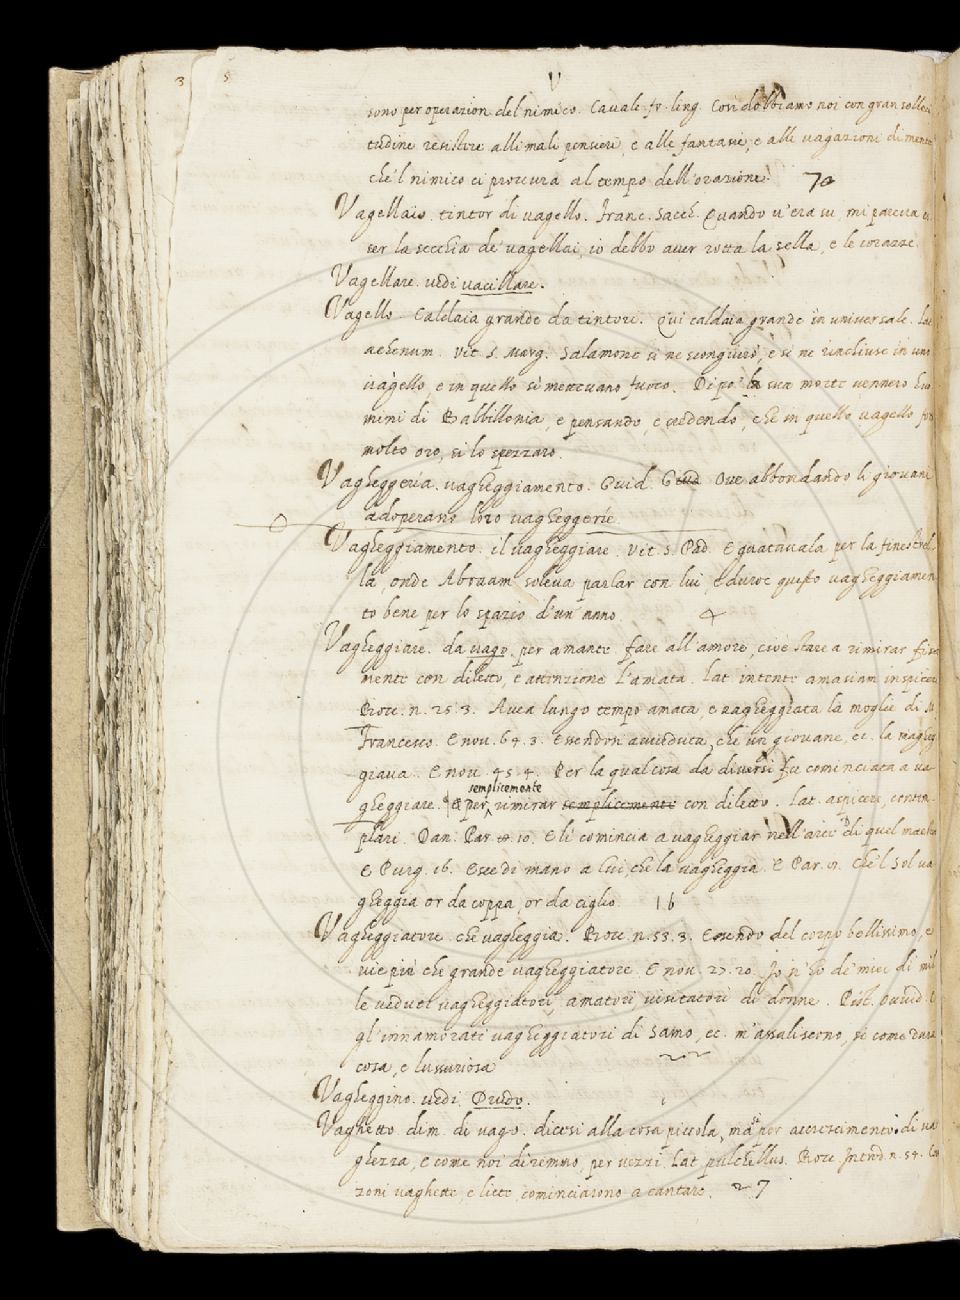 3 8
V
sono per operazion del nimico. Caval. fr. ling. Così dobbiamo noi con gran solleci
tudine resistere alli mali pensieri, e alle fantasie, e alle vagazioni di mente
che'l nimico ci procura al tempo dell'orazione.
Vagellaio. tintor di vagello. Franc. Sacch. Quando v'era su, mi pareva es
ser la secchia de' vagellai, io debbo aver rotta la sella, e le corazze.
Vagellare. vedi vacillare.
Vagello. Caldaia grande da tintori. Qui caldaia grande in universale. Lat
aehenum. Vit. S. Marg. Salamone si ne scongiurò, e si ne rinchiuse in uno
vagello, e in quello si mettevano fuoco. Dipo' la sua morte vennero huo
mini di Babbillonia, e pensando, e credendo, che in quello vagello fos
molto oro, si lo spezzaro.
Vagheggería. vagheggiamento. Guid. G. Ove abbondando li giovani
adoperano loro vagheggeríe.
Vagheggiamento. il vagheggiare. Vit. S. Pad. E guatavala per la finestrel
la, onde Abraam soleva parlar con lui, e duroe questo vagheggiamen
to bene per lo spazio d'un'anno.
Vagheggiare. da vago. per amante. fare all'amore, cioè stare a rimirar fiso
mente con diletto, e attenzione l'amata. Lat. intente amasiam inspicere
Bocc. n. 25. 3. Avea lungo tempo amata, e vagheggiata la moglie di M.
Francesco. E nov. 64. 3. Essendosi avveduta, che un giovane, ec. la vagheg
giava. E nov. 45. 4. Per la qual cosa da diversi fu cominciata a va
semplicemente
gheggiare. E per rimirar semplicemente con diletto. Lat. aspicere, contem
plari. Dan. Par. 10. E lì comincia a vagheggiar nell'arte di quel maestro
E Purg. 16. Esce di mano a lui, che la vagheggia. E Par. 8. Che'l Sol va
gheggia or da coppa, or da ciglio. 16
Vagheggiatore. che vagheggia. Bocc. n. 53. 3. Essendo del corpo bellissimo, e
vie più che grande vagheggiatore. E nov. 27. 20. Io n'ho de' miei dì mil
le veduti vagheggiatori, amatori, visitatori di donne. Pist. Ovvid.
gl'innamorati vagheggiatori di Samo, ec. m'assaliscono, sì come rara
cosa, e lussuriosa
Vagheggino. vedi Drudo.
Vaghetto dim. di vago. dicesi alla cosa piccola, ma per accrescimento di va
ghezza, e come noi diremmo, per vezzi. Lat. pulchellus. Bocc. Introd. n. 54. Can
zoni vaghette, e liete cominciarono a cantare. 27